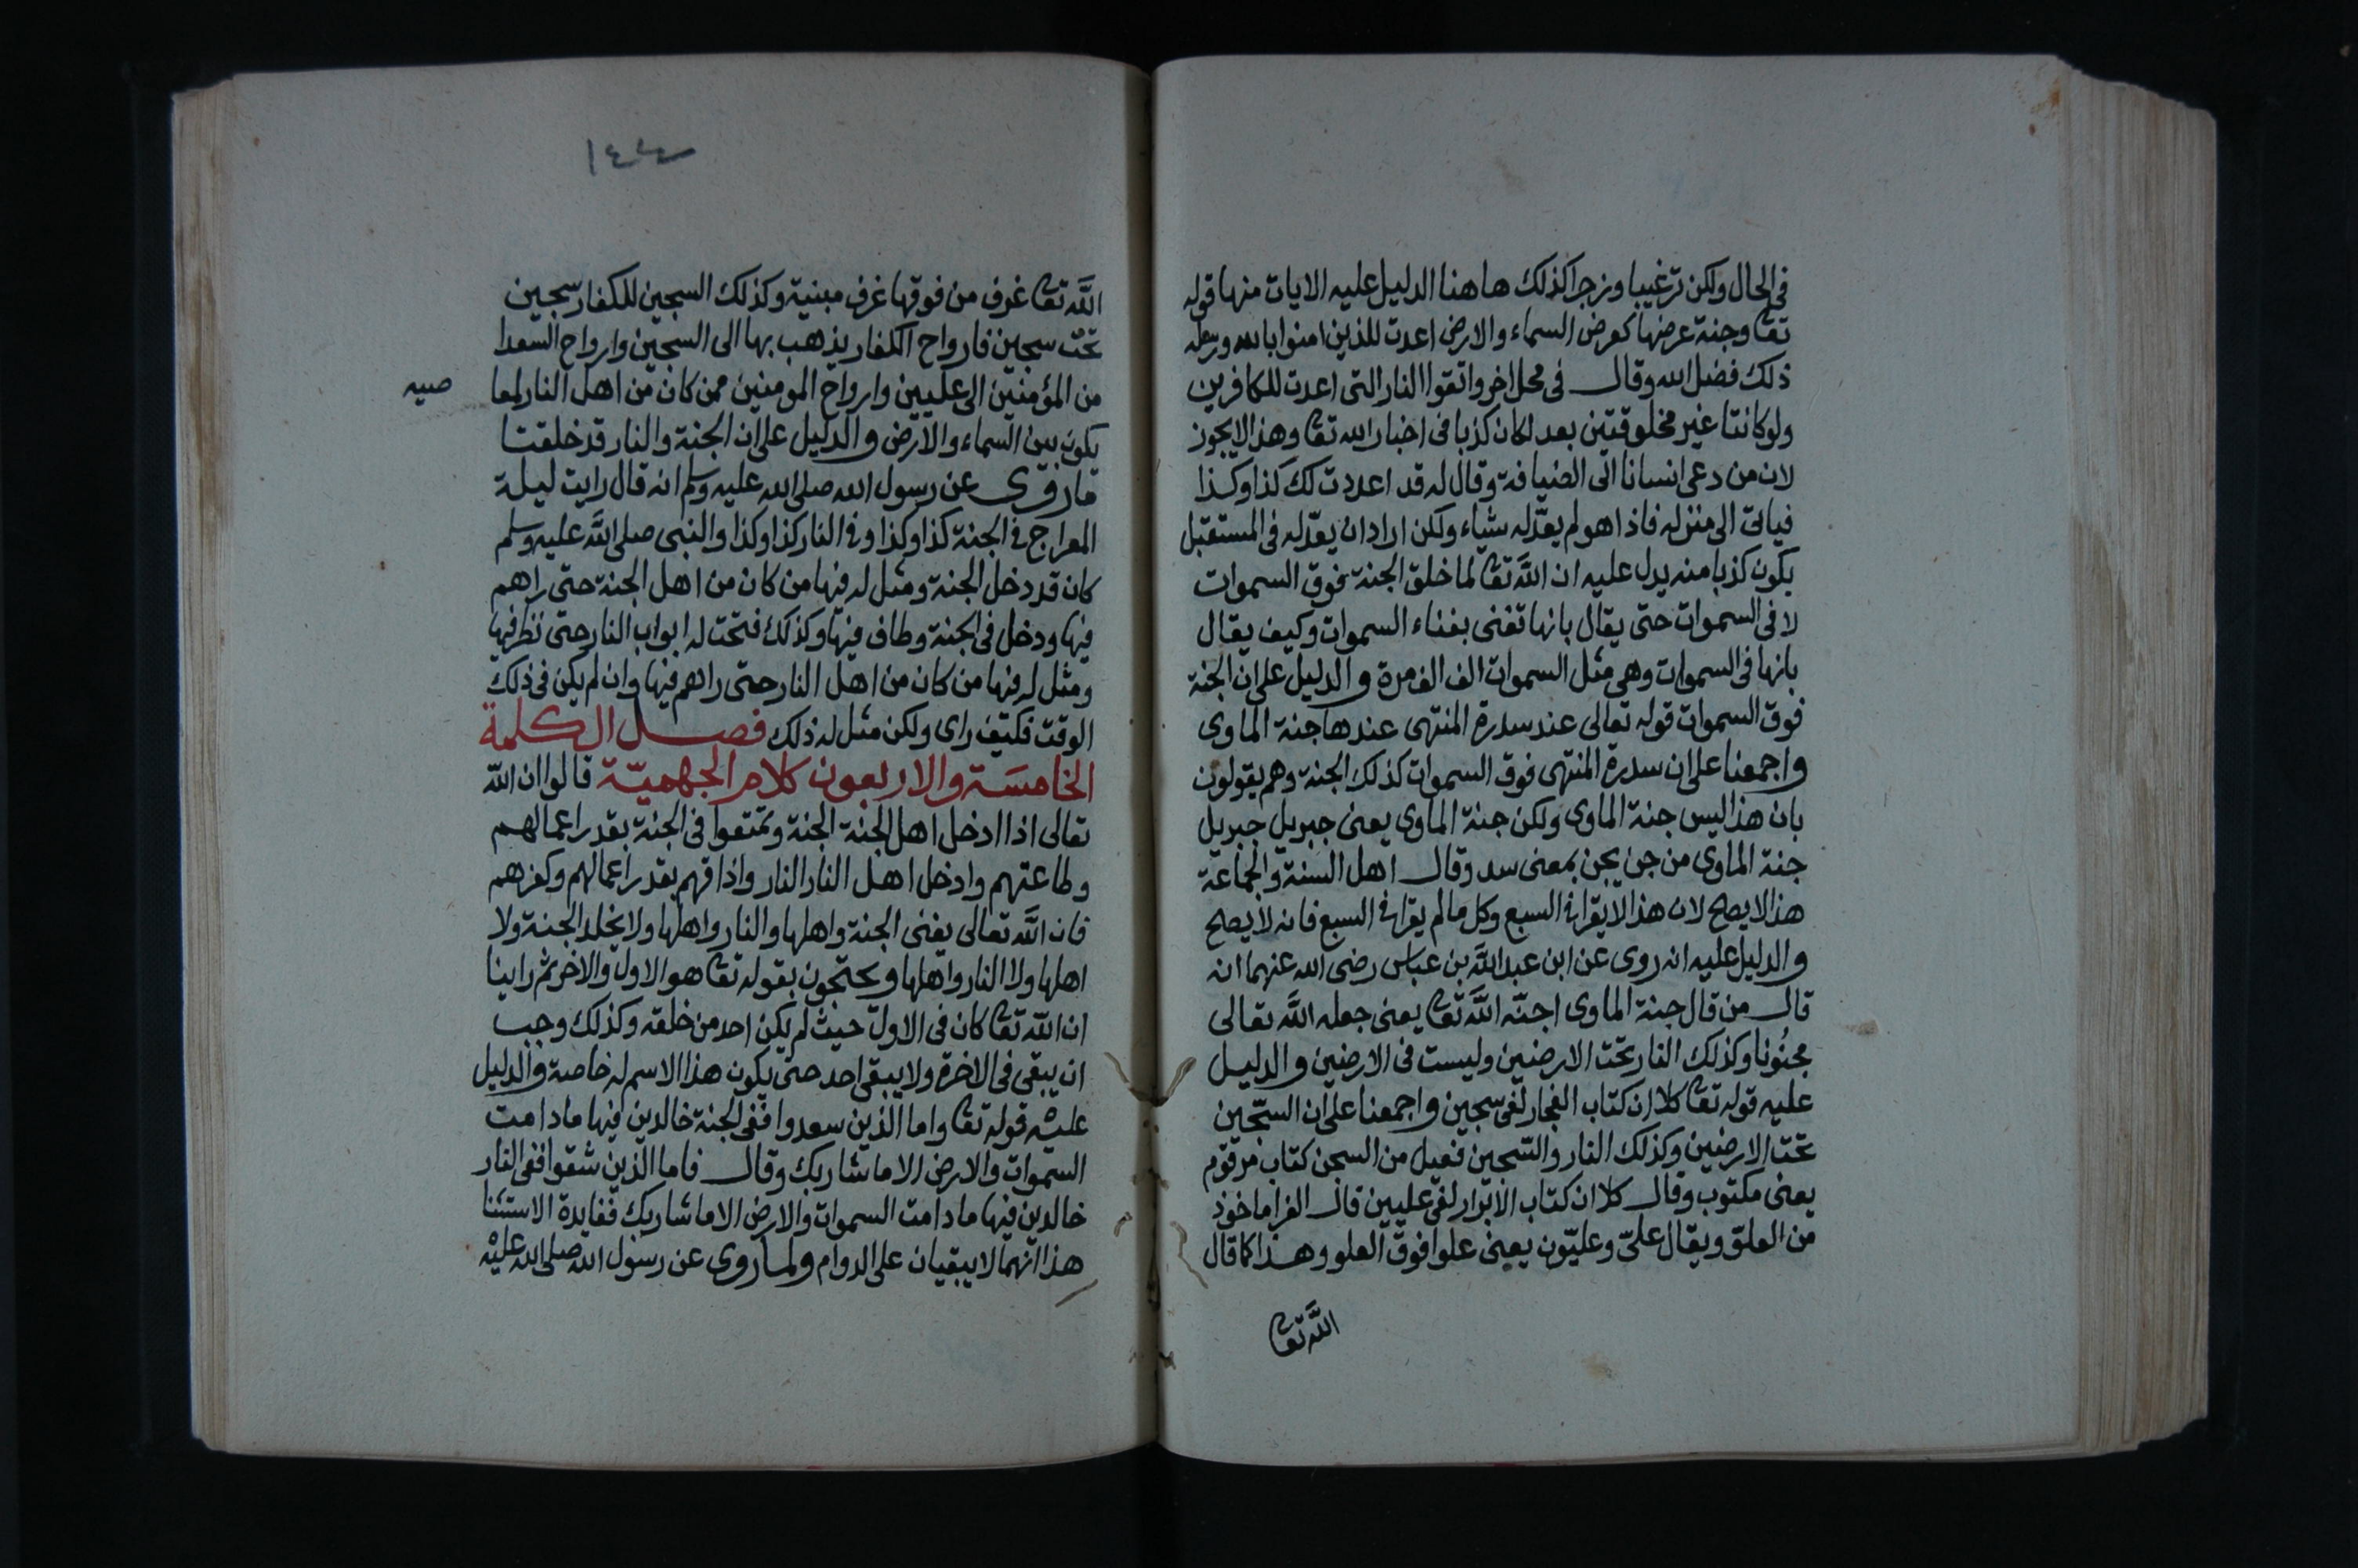 في الحال ولكن ترغيبا وزجرا كذلك هاهنا الدليل عليه الايات منها قوله
تعا وجنة عرضها كعرض السماء والارض اعدت للذين امنوا بالله ورسله
ذلك فضل الله وقال في محل اخر واتقوا النار التي اعدت للكافرين
ولو كانتا غير مخلوقتين بعد لكان كذبا في اخبار الله تعا وهذا لايجوز
لان من دعى انسانا الى الضيافة وقال له قد اعددت لك كذا وكذا
فياتى الى منزله فاذا هو لم يعدّ له شياء ولكن اراد ان يعدّ له في المستقبل
يكون كذبا منه يدل عليه ان اللَّه تعا لما خلق الجنة فوق السموات
لا في السموات حتى يقال بانها تفنى بفناء السموات وكيف يقال
بانها في السموات وهي مثل السموات الف الف مرة والدليل على ان الجنة
فوق السموات قوله تعالى عند سدرة المنتهى عندها جنة الماوى
واجمعنا على ان سدرة المنتهى فوق السموات كذلك الجنة وهم يقولون
بان هذا ليس جنة الماوى ولكن جنة الماوى يعنى جبريل جبريل
جنة الماوى من جن يجن بمعنى سد وقال اهل السنة والجماعة
هذا لايصح لان هذا لايقرا في السبع وكل ما لم يقرا في السبع فانه لايصح
والدليل عليه انه روى عن ابن عبد اللَّه بن عباس رضى الله عنهما انه
قال من قال جنة الماوى اجنّه اللَّه تعا يعنى جعله اللَّه تعالى
مجنُونا وكذلك النار تحت الارضين وليست في الارضين والدليل
عليه قوله تعا كلا ان كتاب الفجار لفى سجين واجمعنا على ان السّجين
تحت الارضين وكذلك النار والسّجين فعيل من السجن كتاب مرقوم
يعنى مكتوب وقال كلا ان كتاب الابرار لفى عليين قال الفرا ماخوذ
من العلوّ ويقال علىّ وعليّون يعنى علوا فوق العلو وهذا كما قال
اللَّه تعا
١٤٤
اللَّه تعا غرف من فوقها غرف مبنية وكذلك السجين للكفار سجين
تحت سجين فارواح الكفار يذهب بها الى السجين وارواح السعدا
من المؤمنين الى عليين وارواح المومنين ممن كان من اهل النار لمعا
صيه
يكون بين السماء والارض والدليل على ان الجنة والنار قد خلقتا
ما روى عن رسول الله صلى الله عليه وسلم انه قال رايت ليلة
المعراج في الجنة كذا وكذا وفي النار كذا وكذا والنبى صلى اللَّه عليه وسلم
كان قد دخل الجنة ومثل له فيها من كان من اهل الجنة حتى راهم
فيها ودخل في الجنة وطاف فيها وكذلك فتحت له ابواب النار حتى نظر فيها
ومثل له فيها من كان من اهل النار حتى راهم فيها وان لم يكن في ذلك
الوقت فكيف راى ولكن مثل له ذلك فصل الكلمة
الخامسَة والاربعون كلام الجهميّة قالوا ان اللّه
تعالى اذا ادخل اهل الجنة الجنة وتمتعوا في الجنة بقدر اعمالهم
وطاعتهم وادخل اهل النار النار واذاقهم بقدر اعمالهم وكفرهم
فان اللَّه تعالى يفنى الجنة واهلها والنار واهلها ولا يخلد الجنة ولا
اهلها ولا النار واهلها ويحتجون بقوله تعا هو الاول والاخر ثم راينا
ان اللّه تعا كان في الاولّ حيث لم يكن احد من خلقه وكذلك وجب
ان يبقى في الاخرة ولا يبقى احد حتى يكون هذا الاسم له خاصة والدليل
عليه قوله تعا واما الذين سعدوا ففي الجنة خالدين فيها مادامت
السموات والارض الا ماشا ربك وقال فاما الذين شقوا ففى النار
خالدين فيها مادامت السموات والارض الا ما شا ربك ففايدة الاستثنا
هذا انهما لايبقيان على الدوام ولما روى عن رسول الله صلى الله عليه